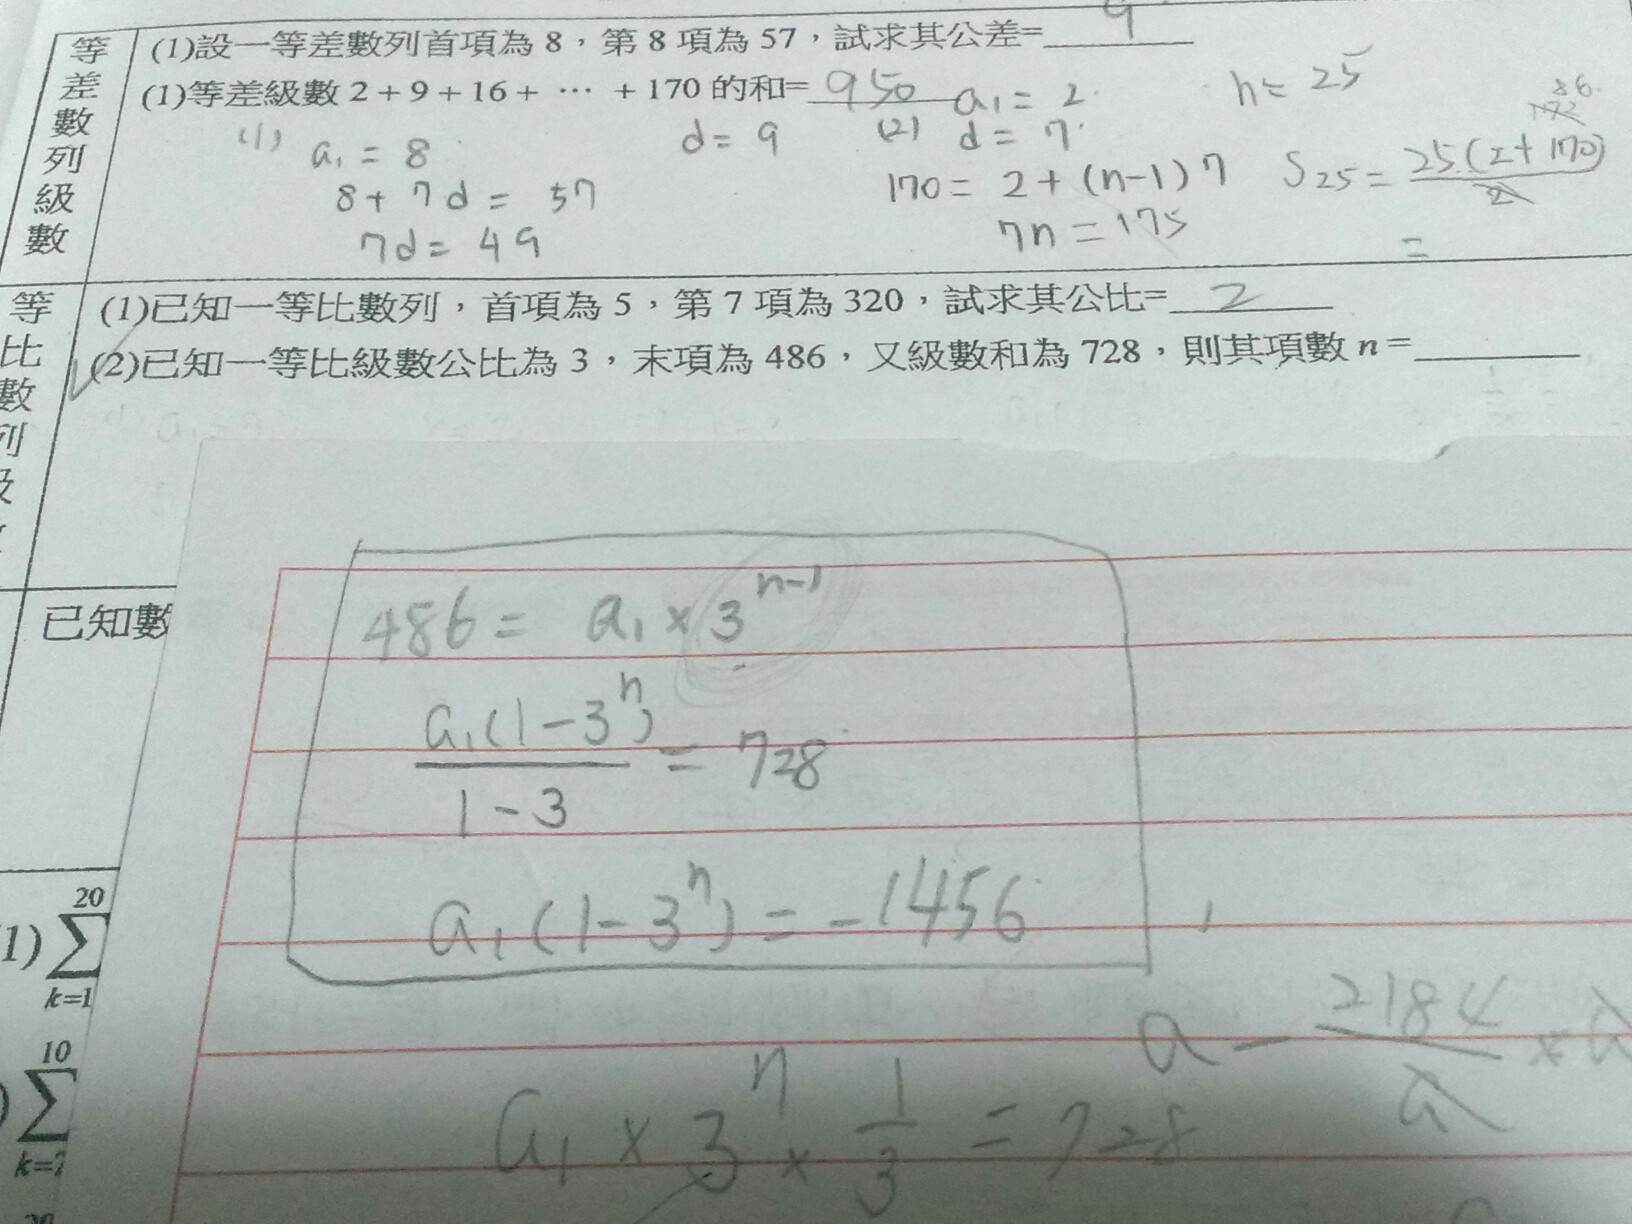 等差數列級數
(1)設一等差數列首項為 8，第 8 項為 57，試求其公差=9
(1)等差級數 2 + 9 + 16 + ⋯ + 170 的和=950
(1) a₁ = 8
8 + 7d = 57
7d = 49
d = 9
(2) a₁ = 2
d = 7
170 = 2 + (n-1)7
7n = 175
n = 25
86
172
S₂₅ = 25(2+170)/2
=
等比數列級
(1)已知一等比數列，首項為 5，第 7 項為 320，試求其公比=2
(2)已知一等比級數公比為 3，末項為 486，又級數和為 728，則其項數 n =
486 = a₁ × 3ⁿ⁻¹
a₁(1-3ⁿ)/1-3 = 728
a₁(1-3ⁿ) = -1456
已知數
a - 2184/a × a
a₁ × 3ⁿ × 1/3 = 728
1) 20 ∑ k=1
) 10 ∑
20